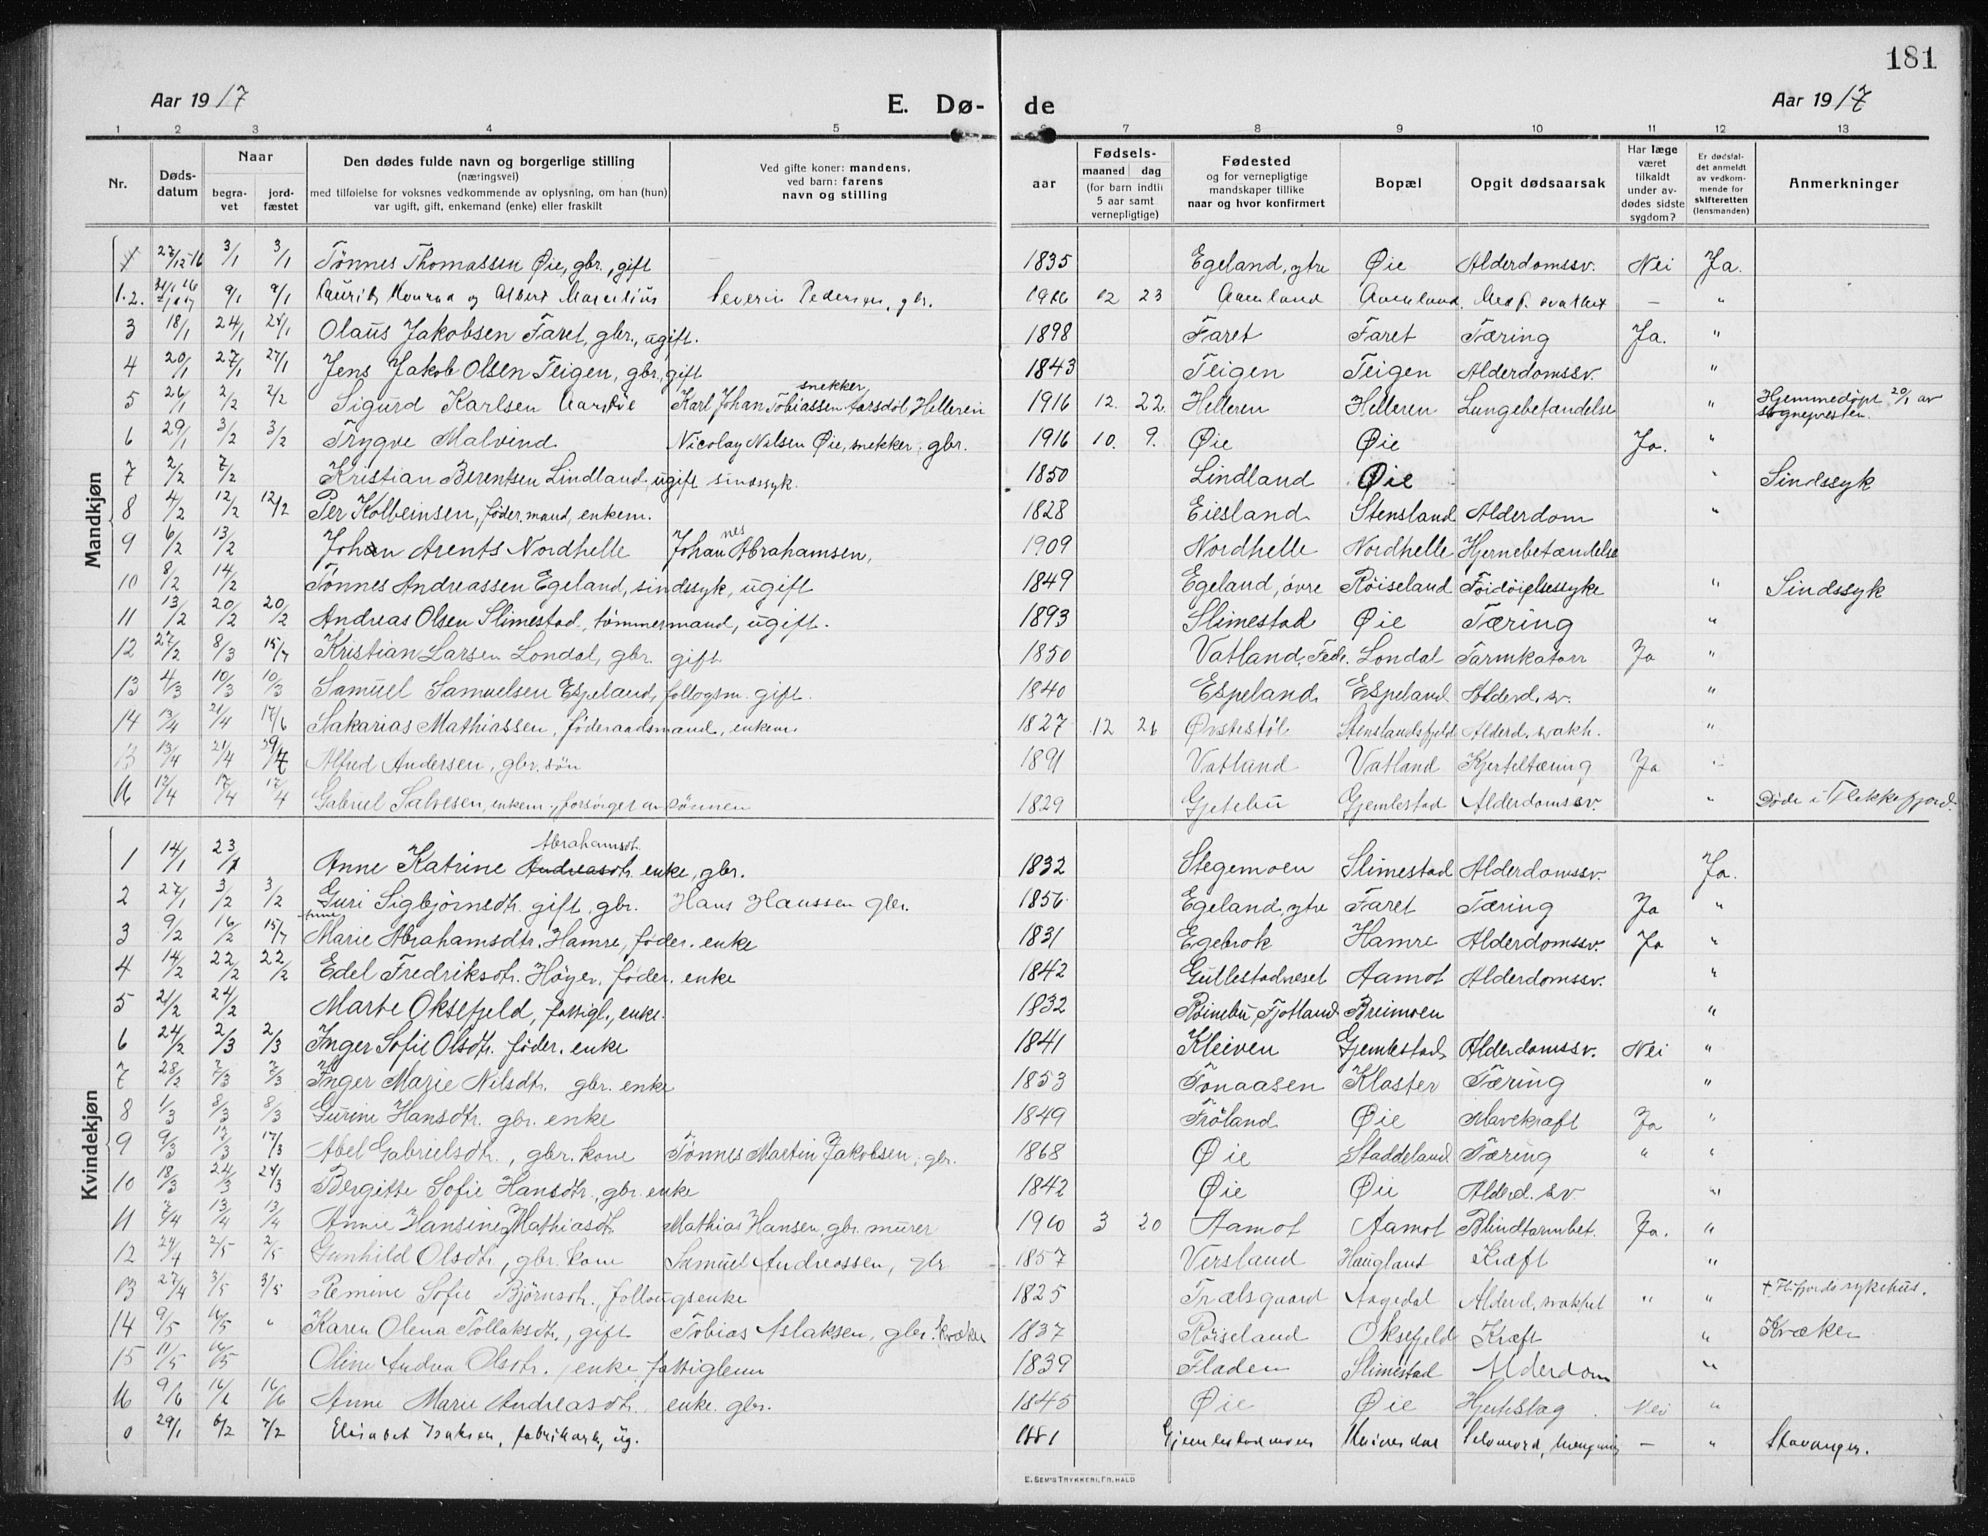 181
Aar 1917 E. Dø- de Aar 1917
1 2 3 4 5 6 7 8 9 10 11 12 13
Nr. Døds-datum Naar begra-vet jord-fæstet Den dødes fulde navn og borgerlige stilling (næringsvei) med tilføielse for voksnes vedkommende av oplysning, om han (hun) var ugift, gift, enkemand (enke) eller fraskilt Ved gifte koner: mandens, ved barn: farens navn og stilling aar Fødsels- maaned dag (for barn indtil 5 aar samt vernepligtige) Fødested og for vernepligtige mandskaper tillike naar og hvor konfirmert Bopæl Opgit dødsaarsak Har læge været tilkaldt under av-dødes sidste sygdom? Er dødsfal-det anmeldt av vedkom-mende for skifteretten (lensmanden) Anmerkninger
Mandkjøn
1 27/12-16 3/1 3/1 Tønnes Thomassen Øie, gbr., gift 1835 Egeland, ytre Øie Alderdomssv. Nei Ja.
1.2. 9/1 9/1 og Albert Severin Pedersen, gbr. 1916 12 23 Aamland Aamland — "
3 18/1 24/1 24/1 Olaus Jakobsen Faret, gbr., ugift. 1898 Faret Faret Tæring Ja. "
4 20/1 27/1 27/1 Jens Jakob Olsen Teigen, gbr., gift 1843 Teigen Teigen Alderdomssv. "
5 26/1 2/2 2/2 Sigurd Karlsen Karl Johan Tobiassen Aarsdøl Helleren snekker 1916 12. 22. Helleren Helleren Lungebetændelse " Hjemmedøpt 20/1 av sognepresten.
6 29/1 3/2 3/2 Trygve Malvind Nicolay Nilsen Øie, snekker, gbr. 1916 10. 9. Øie Øie Ja. "
7 2/2 7/2 Kristian Berentsen Lindland, ugift sindssyk. 1850 Lindland Øie " Sindssyk
8 4/2 12/2 12/2 Per Kolbeinsen, føder.mand, enkem. 1828 Eiesland Stensland Alderdom "
9 6/2 13/2 Johan Arents Nordhelle Johannes Abrahamsen, 1909 Nordhelle Nordhelle Hjernebetændelse
10 8/2 14/2 Tønnes Andreassen Egeland, sindssyk, ugift 1849 Egeland, øvre Røiseland Fordøielsessyke " Sindssyk
11 13/2 20/2 20/2 Andreas Olsen Slimestad, tømmermand, ugift. 1893 Slimestad Øie Tæring "
12 27/2 8/3 15/7 Kristian Larsen Londal, gbr. gift 1850 Vatland, Fede. Londal Tarmkatarr Ja "
13 4/3 10/3 10/3 Samuel Samuelsen Espeland, follogsm. gift. 1840 Espeland Espeland Alderd.sv. "
14 13/4 21/4 17/6 Sakarias Mathiassen, føderaadsmand, enkem. 1827 12 26 Øvstestøl Stenslandsfjeld Alderd.svakh. "
13/4 21/4 29/7 Alfred Andersen, gbr. søn 1891 Vatland Vatland Kjerteltæring Ja "
16 12/4 17/4 17/4 Gabriel Salvesen, enkem., forsørget av sønnen 1829 Gjetebu Gjemlestad Alderdomssv. " Døde i Flekkefjord.
Kvindekjøn
1 14/1 23/1 Anne Katrine Andreasdtr. Abrahamsdt. enke, gbr. 1832 Stegemoen Slimestad Alderdomssv. Ja.
2 27/1 3/2 3/2 Guri Sigbjørnsdtr. gift, gbr. Hans Hanssen gbr. 1856 Egeland, ytre Faret Tæring Ja "
3 9/2 16/2 15/7 Marie Abrahamsdtr. Hamre, føder. enke 1831 Egebrok Hamre Alderdomssv. Ja "
4 14/2 22/2 22/2 Edel Fredriksdtr. Høyer, føder. enke 1842 Gullestadneset Aamot Alderdomssv. "
5 21/2 24/2 Marte Oksefjeld, fattigl., enke. 1832 Røinebu, Fjotland Breimoen "
6 24/2 2/3 2/3 Inger Sofie Olsdtr. føder. enke 1841 Kleiven Gjemlestad Alderdomssv. Nei "
7 28/2 7/3 7/3 Inger Marie Nilsdtr. gbr. enke 1853 Tonaasen Kloster Tæring "
8 1/3 8/3 8/3 Gurine Hansdtr. gbr. enke 1849 Frøland Øie Mavekræft Ja "
9 9/3 17/3 17/3 Abel Gabrielsdtr., gbr. kone Tønnes Martin Jakobsen, gbr. 1868 Øie Staddeland Tæring " "
10 18/3 24/3 24/3 Bergitte Sofie Hansdtr., gbr. enke 1842 Øie Øie Alderd.sv "
11 7/4 13/4 13/4 Annie Hansine Mathiasdt. Mathias Hansen, gbr. murer 1910 3 20 Aamot Aamot Blindtarmbet. Ja. "
12 24/4 2/5 2/5 Gunhild Olsdtr., gbr. kone Samuel Andreassen, gbr 1857 Virsland Haugland Kræft "
13 27/4 3/5 3/5 Remine Sofie Bjørnsdtr., follougsenke 1825 Trælsgaard Aagedal Alderd.svakhet " " † Fl.fjords sykehus.
14 9/5 16/5 " Karen Olena Tollaksdtr., gift Tobias Aslaksen, gbr. kvæker 1837 Røiseland Oksefjeld Kræft " Kvæker
15 11/5 16/5 Oline Andrea Olsdtr. enke, fattiglem 1839 Fladen Slimestad Alderdom "
16 9/6 16/6 16/6 Anne Marie Andreasdt. enke. gbr. 1845 Øie Øie Hjerteslag Nei "
0 29/1 6/2 7/2 Elisabet Isaksen, fabrikarb., ug. 1881 Gjemlestadmoen Selvmord, — " Stavanger.
E. SEM'S TRYKKERI, FR.HALD